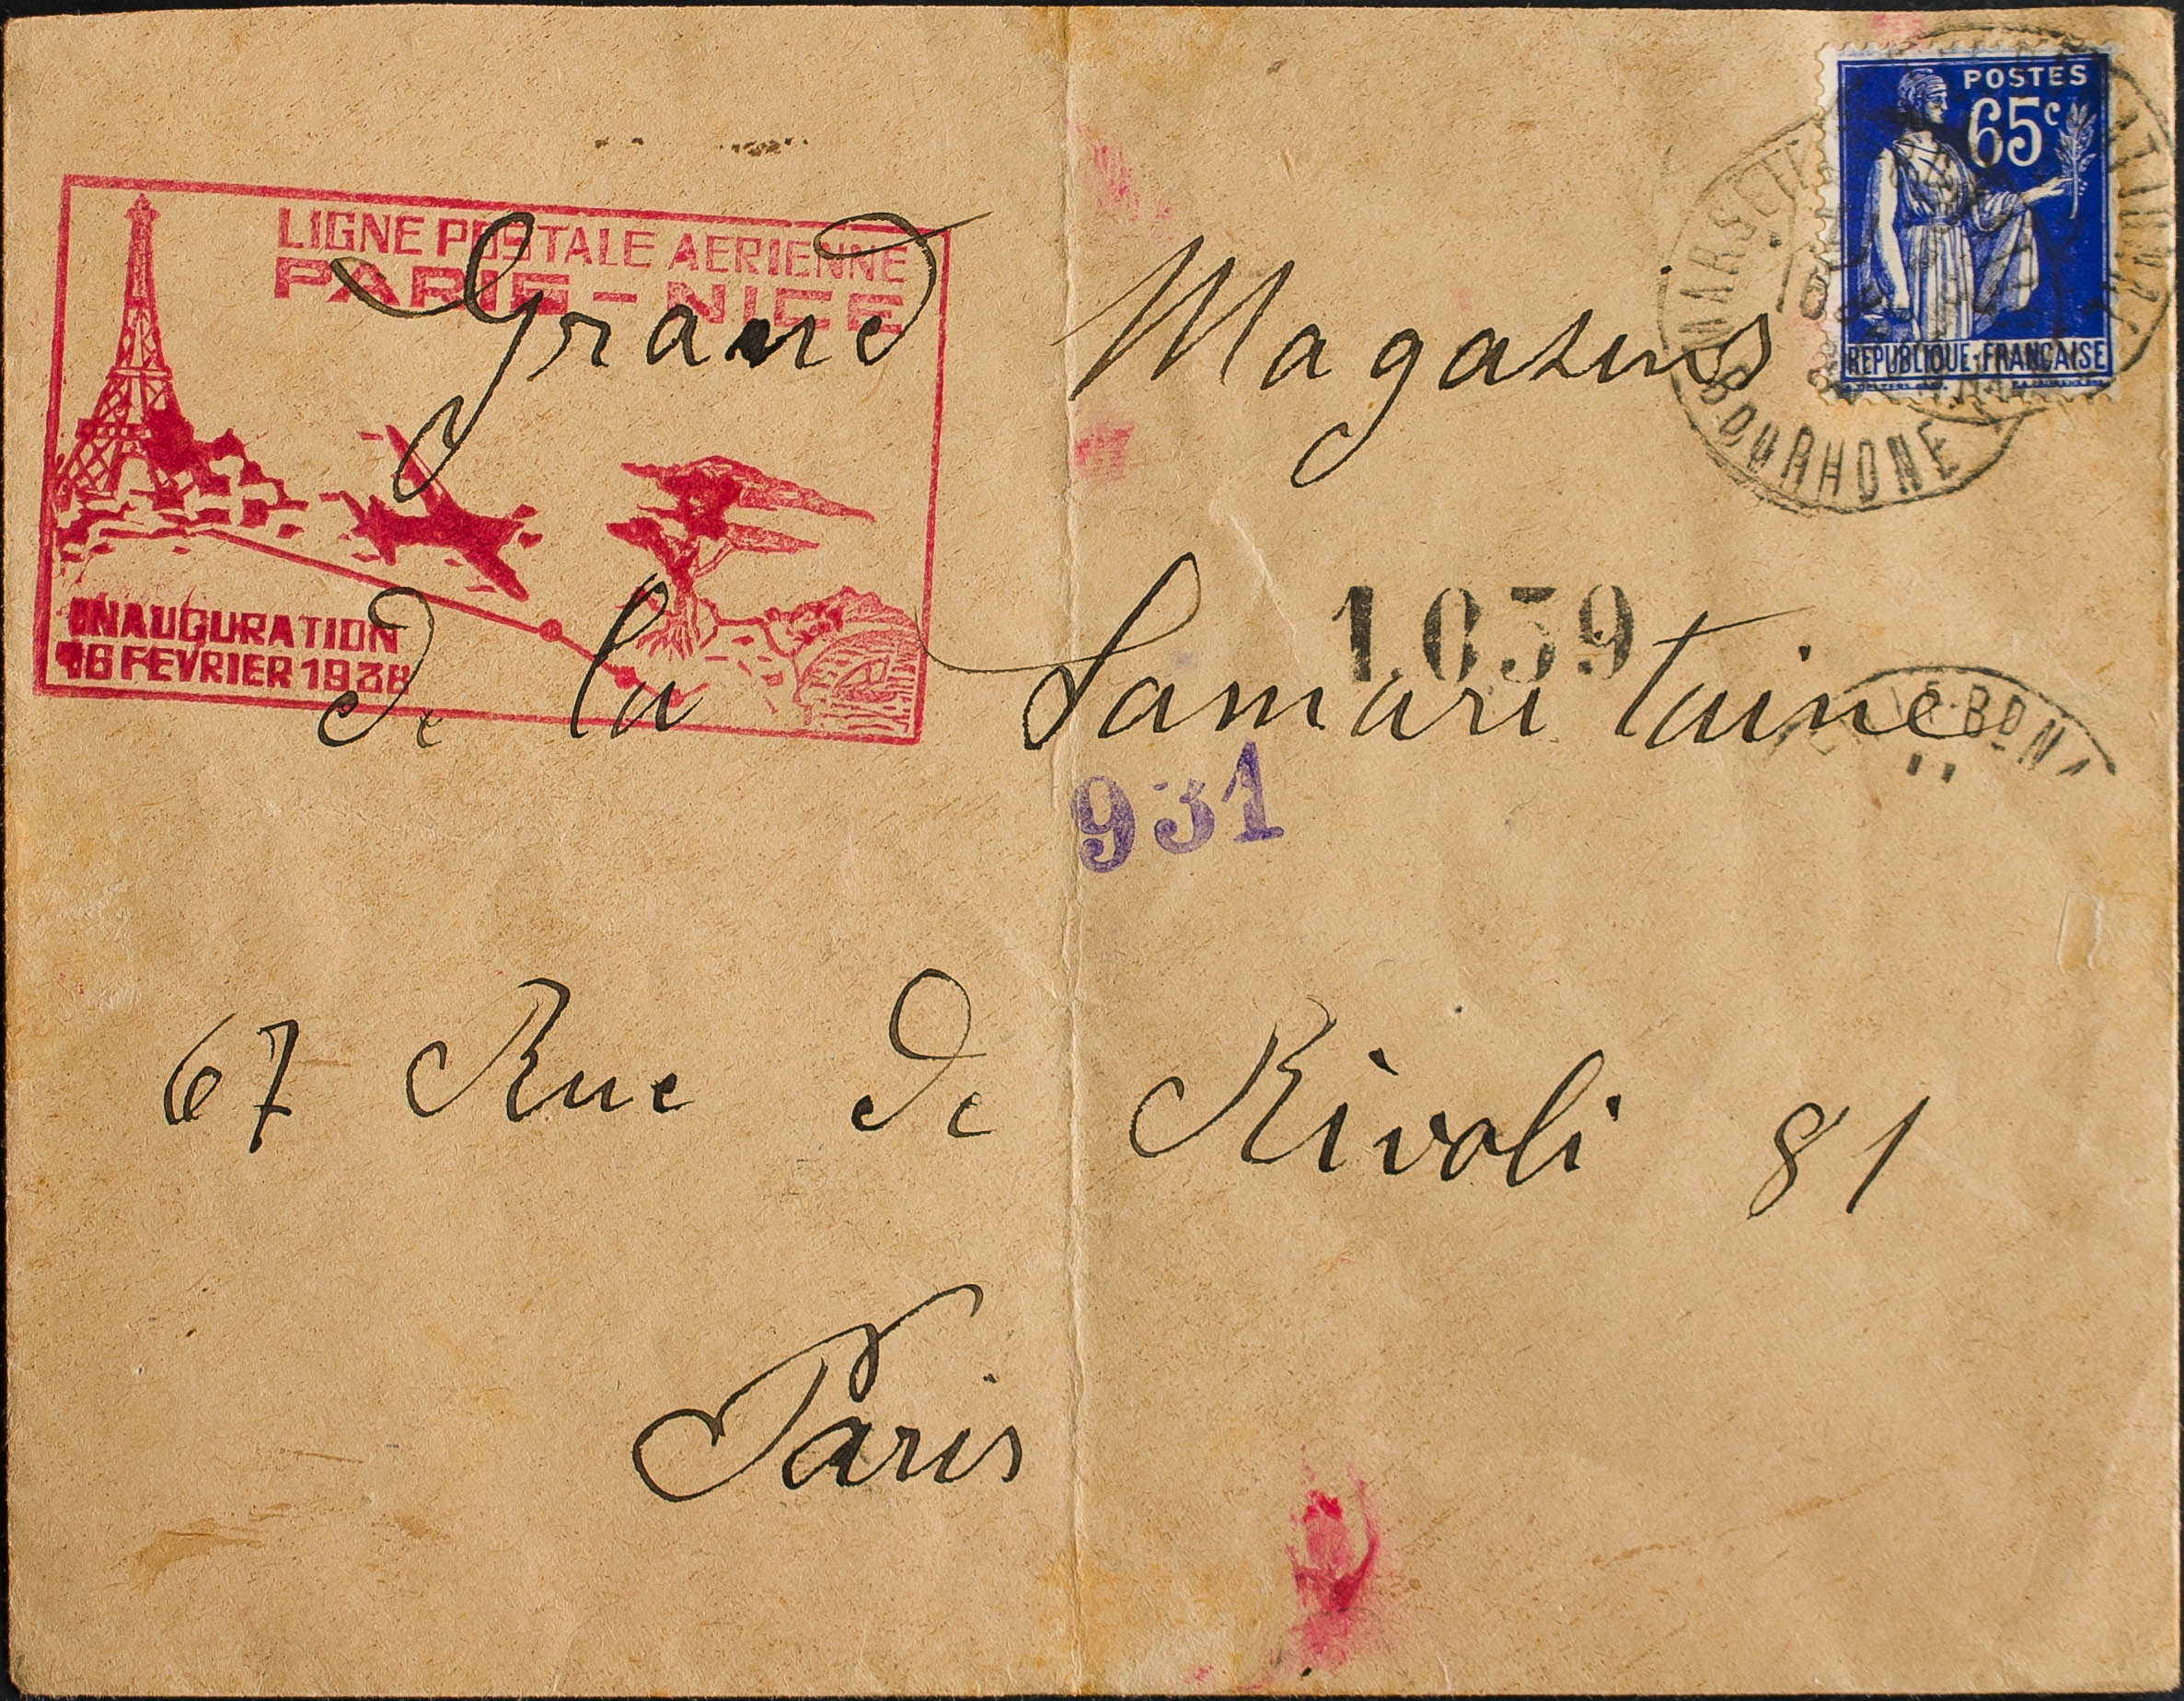 LIGNE POSTALE AERIENNE
PARIS - NICE
INAUGURATION
16 FEVRIER 1938
POSTES
65c
REPUBLIQUE FRANÇAISE
BDURHONE
Grand Magasins
de la Samaritaine
1.659
931
67 Rue de Rivoli 81
Paris